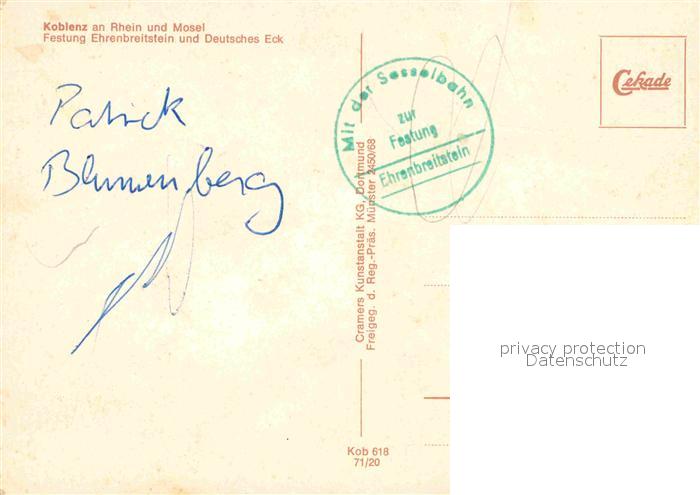 Koblenz an Rhein und Mosel
Festung Ehrenbreitstein und Deutsches Eck
Patrick
Blumenberg
Mit der Sesselbahn
zur
Festung
Ehrenbreitstein
Cekade
Cramers Kunstanstalt KG, Dortmund
Freigeg. d. Reg.-Präs. Münster 2450/68
privacy protection
Datenschutz
Kob 618
71/20